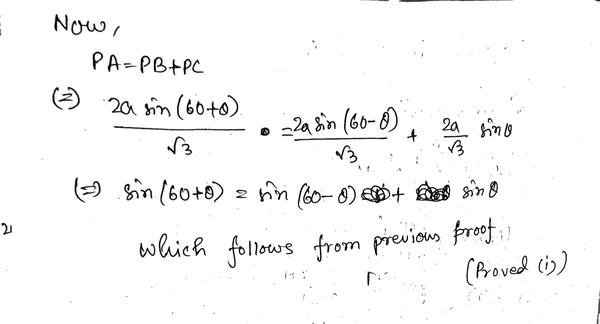 Now,
PA=PB+PC
(=) 2a sin (60+θ) / √3 = 2a sin (60-θ) / √3 + 2a/√3 sinθ
(=) sin (60+θ) = sin (60-θ) + sin θ
which follows from previous proof.
(Proved (i))